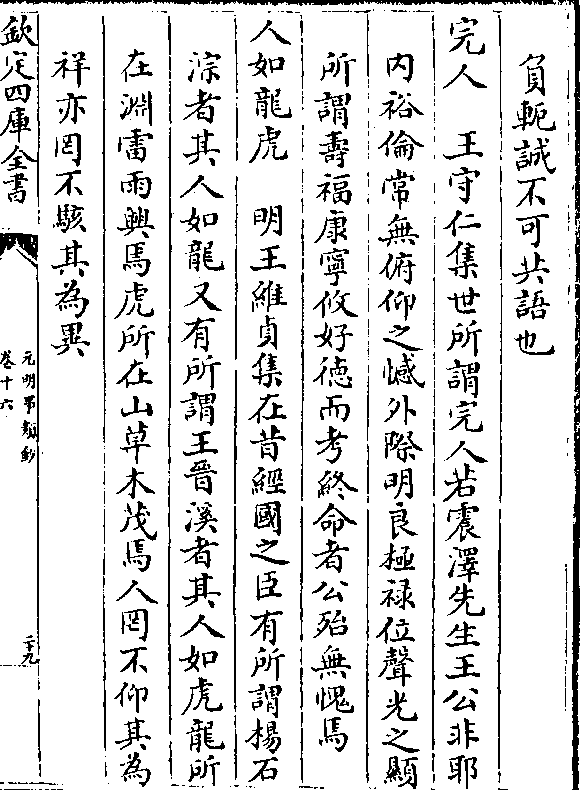 負軛誠不可共語也
完人　王守仁集世所謂完人若震澤先生王公非耶
内裕倫常無俯仰之憾外際明良極禄位聲光之顯
所謂壽福康寧攸好徳而考終命者公殆無愧焉
人如龍虎　明王維貞集在昔經國之臣有所謂楊石
淙者其人如龍又有所謂王晉溪者其人如虎龍所
在淵雷雨興焉虎所在山草木茂焉人罔不仰其為
祥亦罔不駭其為異
欽定四庫全書
元明事類鈔
卷十六
二十九